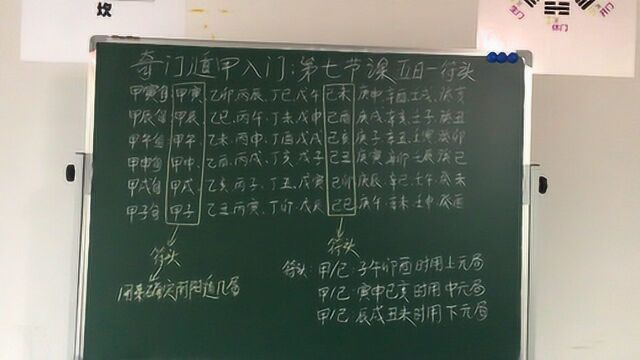 坎
生门 休门 开门
奇门遁甲入门:第七节课 五日一符头
甲寅旬:甲寅、乙卯、丙辰、丁巳、戊午 己未 庚申、辛酉、壬戌、癸亥
甲辰旬:甲辰、乙巳、丙午、丁未、戊申 己酉 庚戌、辛亥、壬子、癸丑
甲午旬:甲午、乙未、丙申、丁酉、戊戌 己亥 庚子、辛丑、壬寅、癸卯
甲申旬:甲申、乙酉、丙戌、丁亥、戊子 己丑 庚寅、辛卯、壬辰、癸巳
甲戌旬:甲戌、乙亥、丙子、丁丑、戊寅 己卯 庚辰、辛巳、壬午、癸未
甲子旬:甲子、乙丑、丙寅、丁卯、戊辰 己巳 庚午、辛未、壬申、癸酉
符头 符头
用来确定 遁几局
符头:甲/己:子午卯酉时用上元局
甲/己:寅申巳亥时用中元局
甲/己:辰戌丑未时用下元局